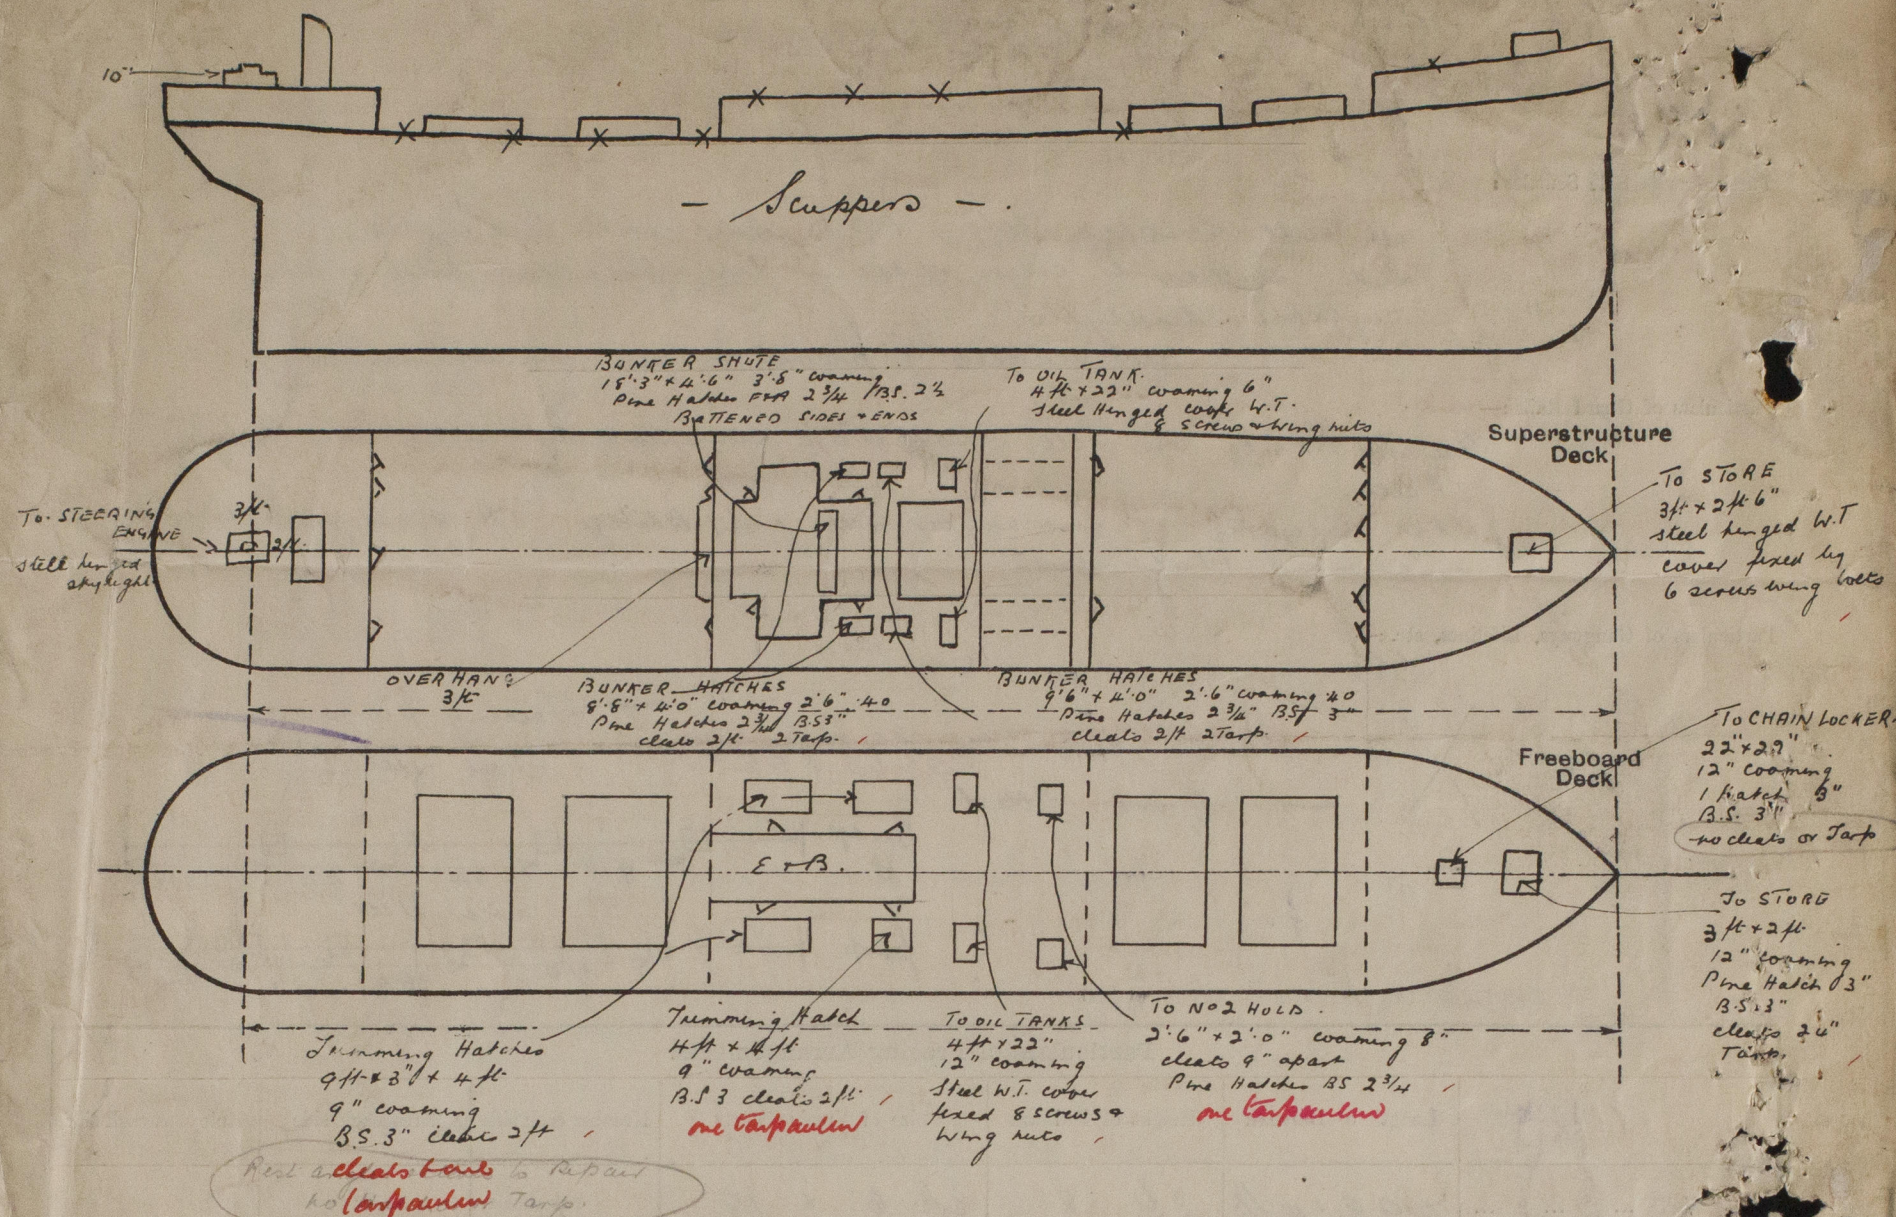 10"
- Scuppers -
BUNKER SHUTE
18'.3" x 4'.6" 3'.8" coaming
Pine Hatches F&A 2 3/4 B.S. 2½
BATTENED SIDES & ENDS
To OIL TANK.
4 ft x 22" coaming 6"
Steel Hinged cover W.T.
8 screws & wing nuts
Superstructure
Deck
To STORE
3ft x 2ft 6"
steel hinged W.T
cover fixed by
6 screws wing bolts
To STEERING
ENGINE
steel hinged
skylight
3ft.
2ft.
OVERHANG
3ft
BUNKER HATCHES
8'.8" x 4'.0" coaming 2'6" .40
Pine Hatches 2 3/4 B.S 3"
cleats 2ft 2 Tarp.
BUNKER HATCHES
9'6" x 4'.0" 2'.6" coaming .40
Pine Hatches 2 3/4" B.S 3"
cleats 2ft 2 Tarp.
Freeboard
Deck
To CHAIN LOCKER.
12" coaming
1 Hatch 3"
B.S. 3"
no cleats or Tarp
E & B.
To STORE
3 ft x 2 ft
12" coaming
Pine Hatch 3"
B.S. 3"
cleats 24"
Tarp.
Trimming Hatches
9ft x 3" x 4 ft
9" coaming
B.S. 3" cleats 2ft
cleats
to Repair
tarpaulin
Tarp.
Trimming Hatch
4ft x 4ft
9" coaming
B.S 3 cleats 2ft
one tarpaulin
To OIL TANKS
4ft x 22"
12" coaming
Steel W.T. cover
fixed 8 screws &
wing nuts
To No 2 HOLD.
2'.6" x 2'.0" coaming 8"
cleats 9" apart
Pine Hatches BS 2 3/4
one tarpaulin